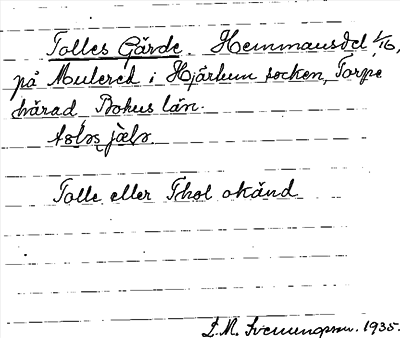 Tolles Gärde. Hemmansdel 1/16,
på Mulered i Hjärtum socken, Torpe
härad, Bohus län.
Tolle eller Thol okänd
L.M. Svenungsson. 1935.